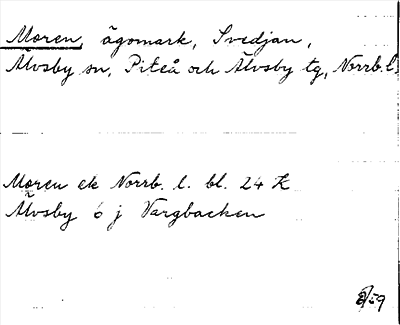 Moren, ägomark, Svedjan,
Älvsby sn, Piteå och Älvsby tg, Norrb. l.
Moren ek Norrb. l. bl. 24 K
Älvsby 6 j Vargbacken